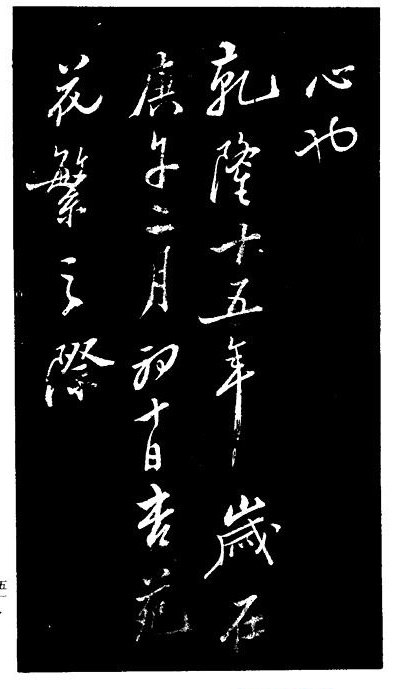 心也
乾隆十五年歲在
庚午二月初十日杏苑
花繁之際
五